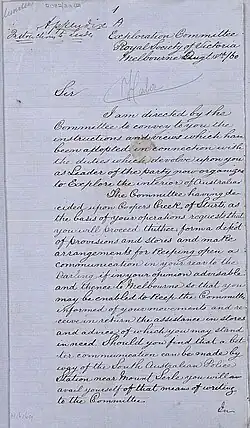 1
Appendix A
Exploration Committee
Royal Society of Victoria
Melbourne Augt 18th/60
Sir
I am directed by the
Committee to convey to you the
instructions and views which have
been adopted in connection with
the duties which devolve upon you
as Leader of the party now organized
to Explore the interior of Australia
The Committee having de
cided upon Coopers Creek, of Sturts as
the basis of your operations requests that
you will proceed thither, form a depôt
of provisions and stores and make
arrangements for keeping open a
communication in your rear to the
Darling, if in your opinion advisable
and thence to Melbourne so that you
may be enabled to keep the Committee
informed of your movements and re
ceive in return the assistance in stores
and advice of which you may stand
in need. Should you find that a bet
ter communication can be made by
way of the South Australian Police
Station near Mount Serle you will
avail yourself of that means of writing
to the Committee.